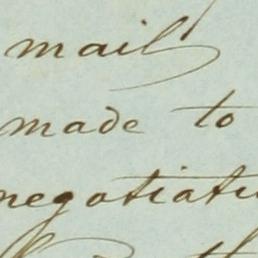 mail
made to
negotiati